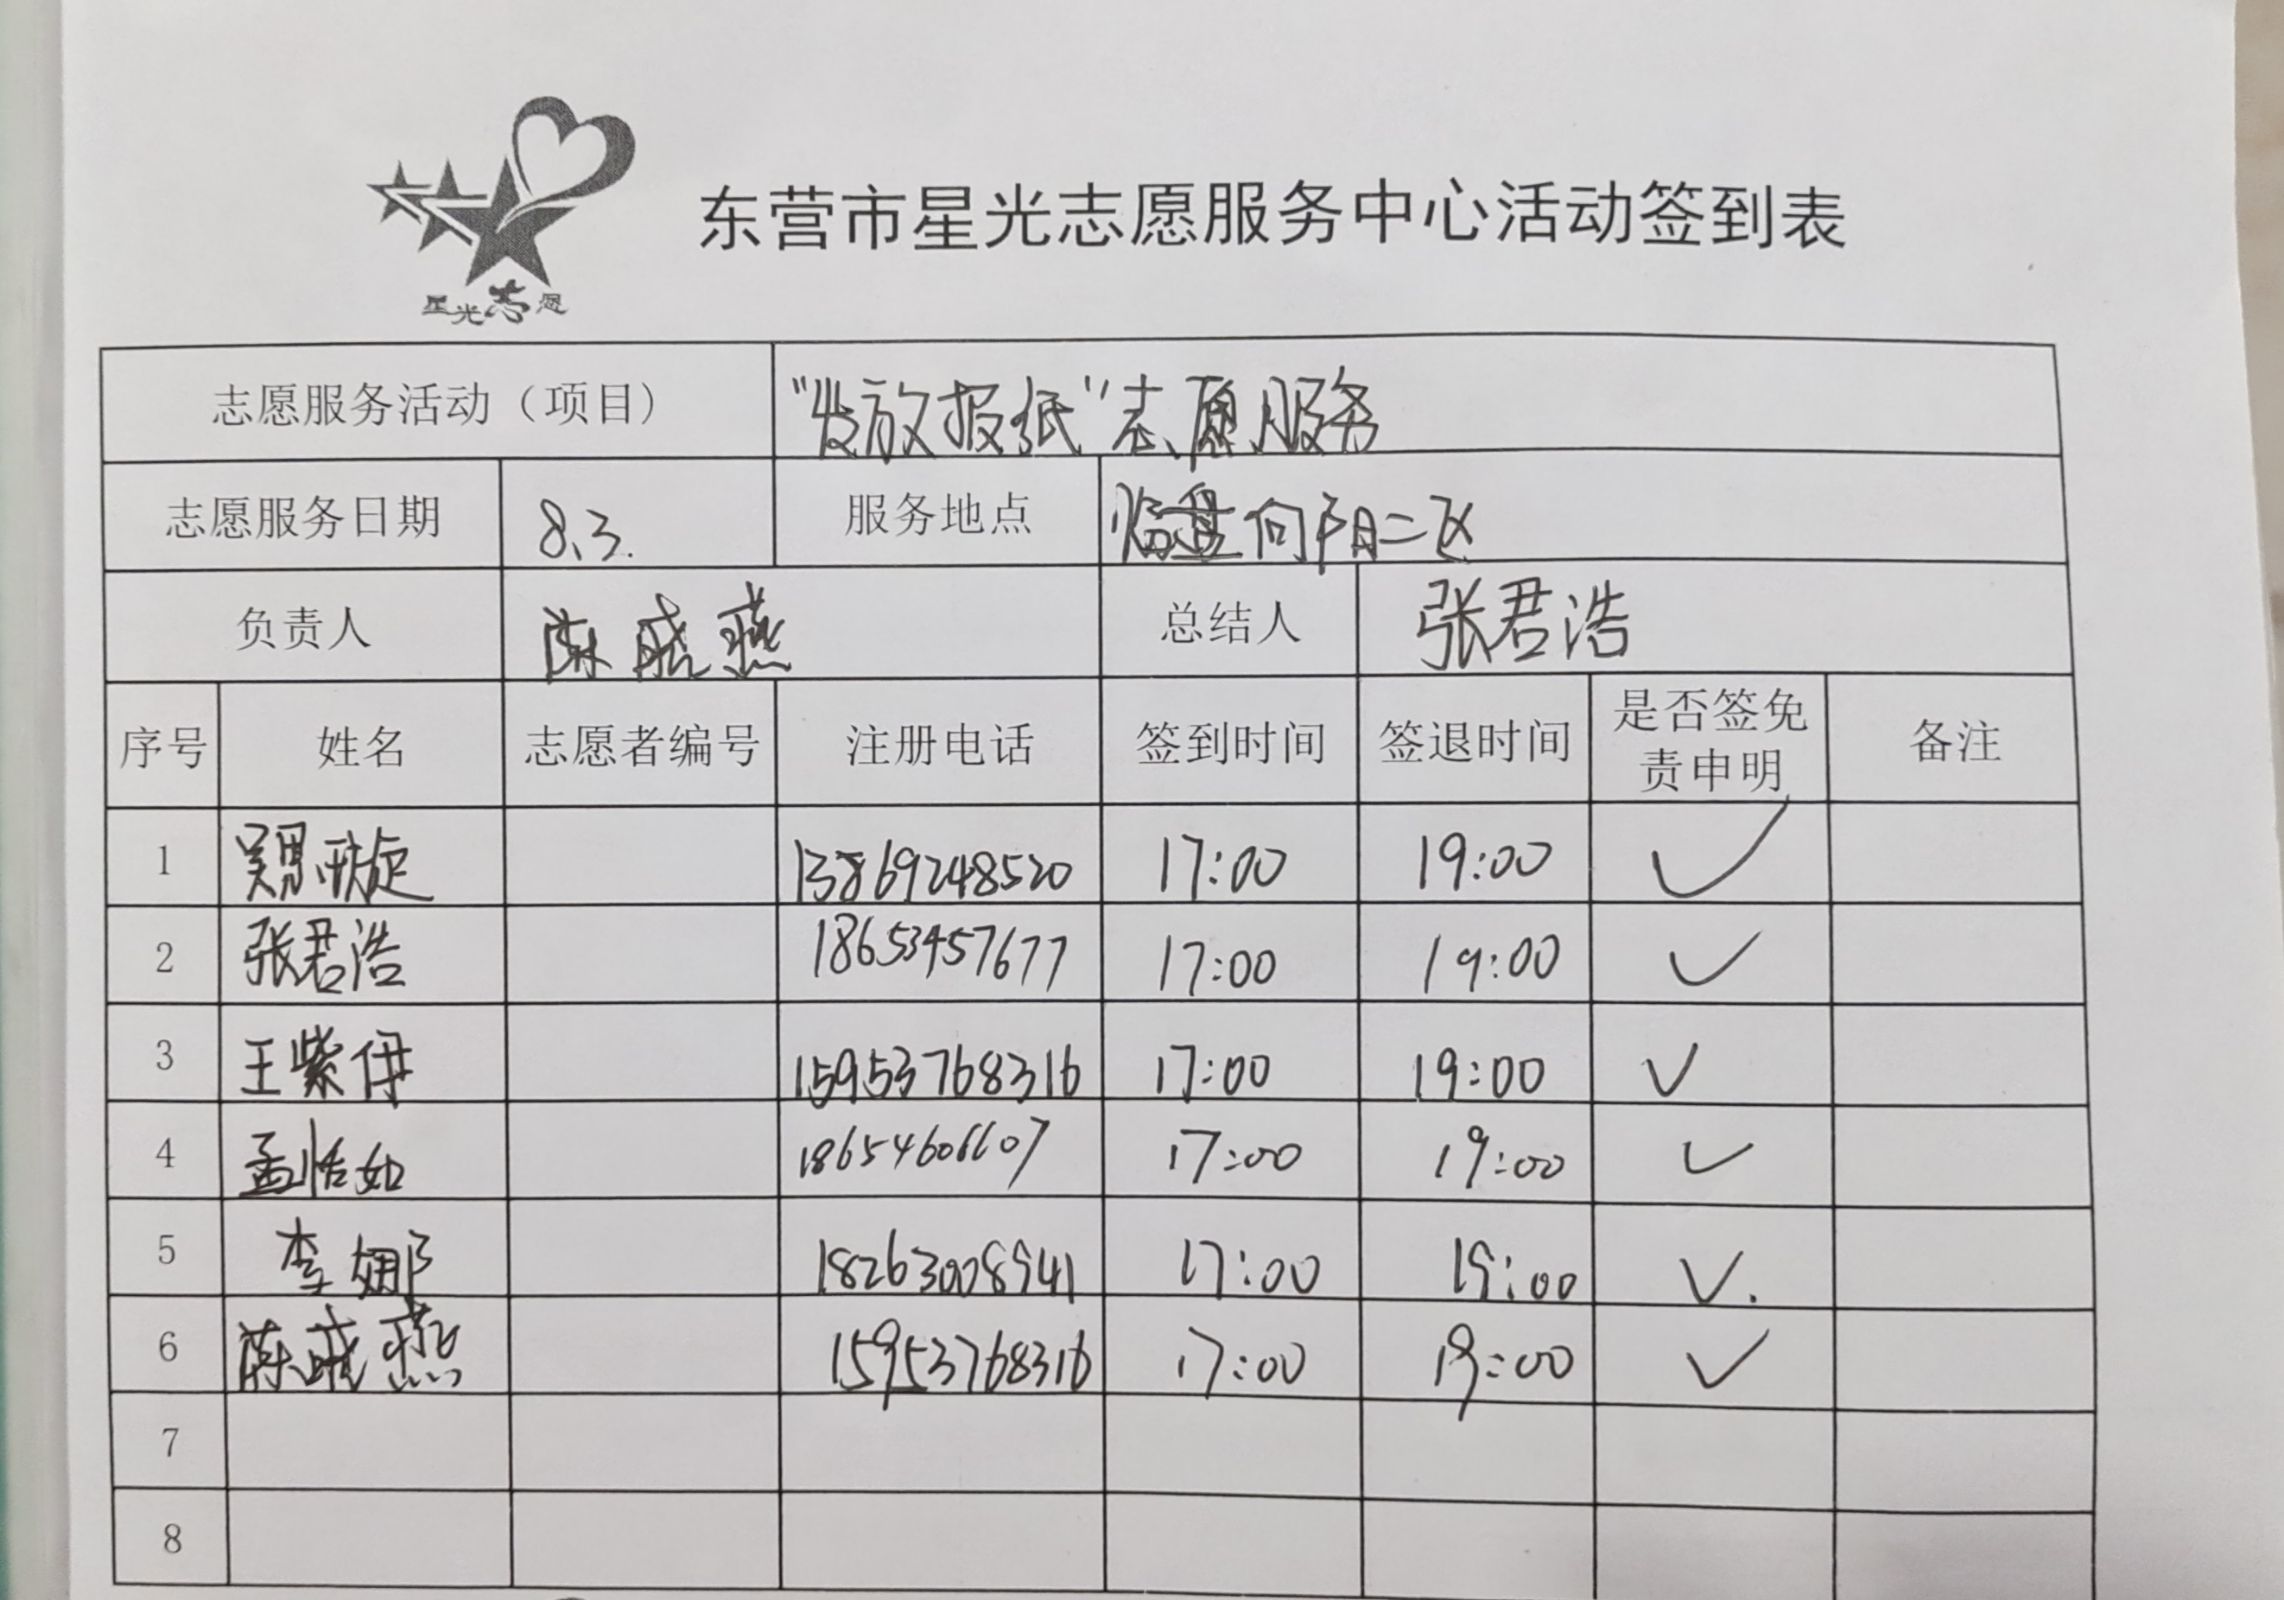 东营市星光志愿服务中心活动签到表
星光志愿
志愿服务活动（项目） “发放报纸”志愿服务
志愿服务日期 8.3. 服务地点 临盘向阳二区
负责人 陈成燕 总结人 张君浩
序号 姓名 志愿者编号 注册电话 签到时间 签退时间 是否签免责申明 备注
1 13869248520 17:00 19:00 ✓
2 张君浩 18653457677 17:00 19:00 ✓
3 王紫伊 15953768316 17:00 19:00 ✓
4 孟恬如 18654606607 17:00 19:00 ✓
5 李娜 18263008941 17:00 19:00 ✓.
6 陈成燕 15953768316 17:00 19:00 ✓
7
8